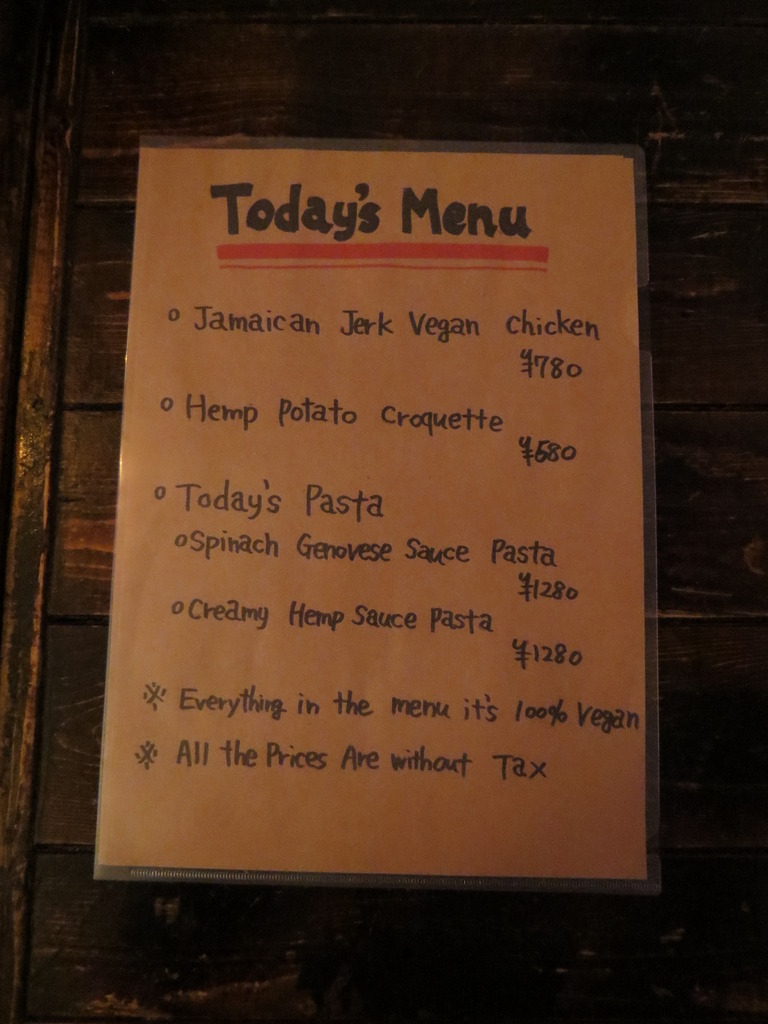 Today's Menu
o Jamaican Jerk Vegan chicken
¥780
o Hemp Potato Croquette
¥680
o Today's Pasta
o Spinach Genovese Sauce Pasta
¥1280
o Creamy Hemp Sauce Pasta
¥1280
※ Everything in the menu it's 100% Vegan
※ All the Prices Are without Tax